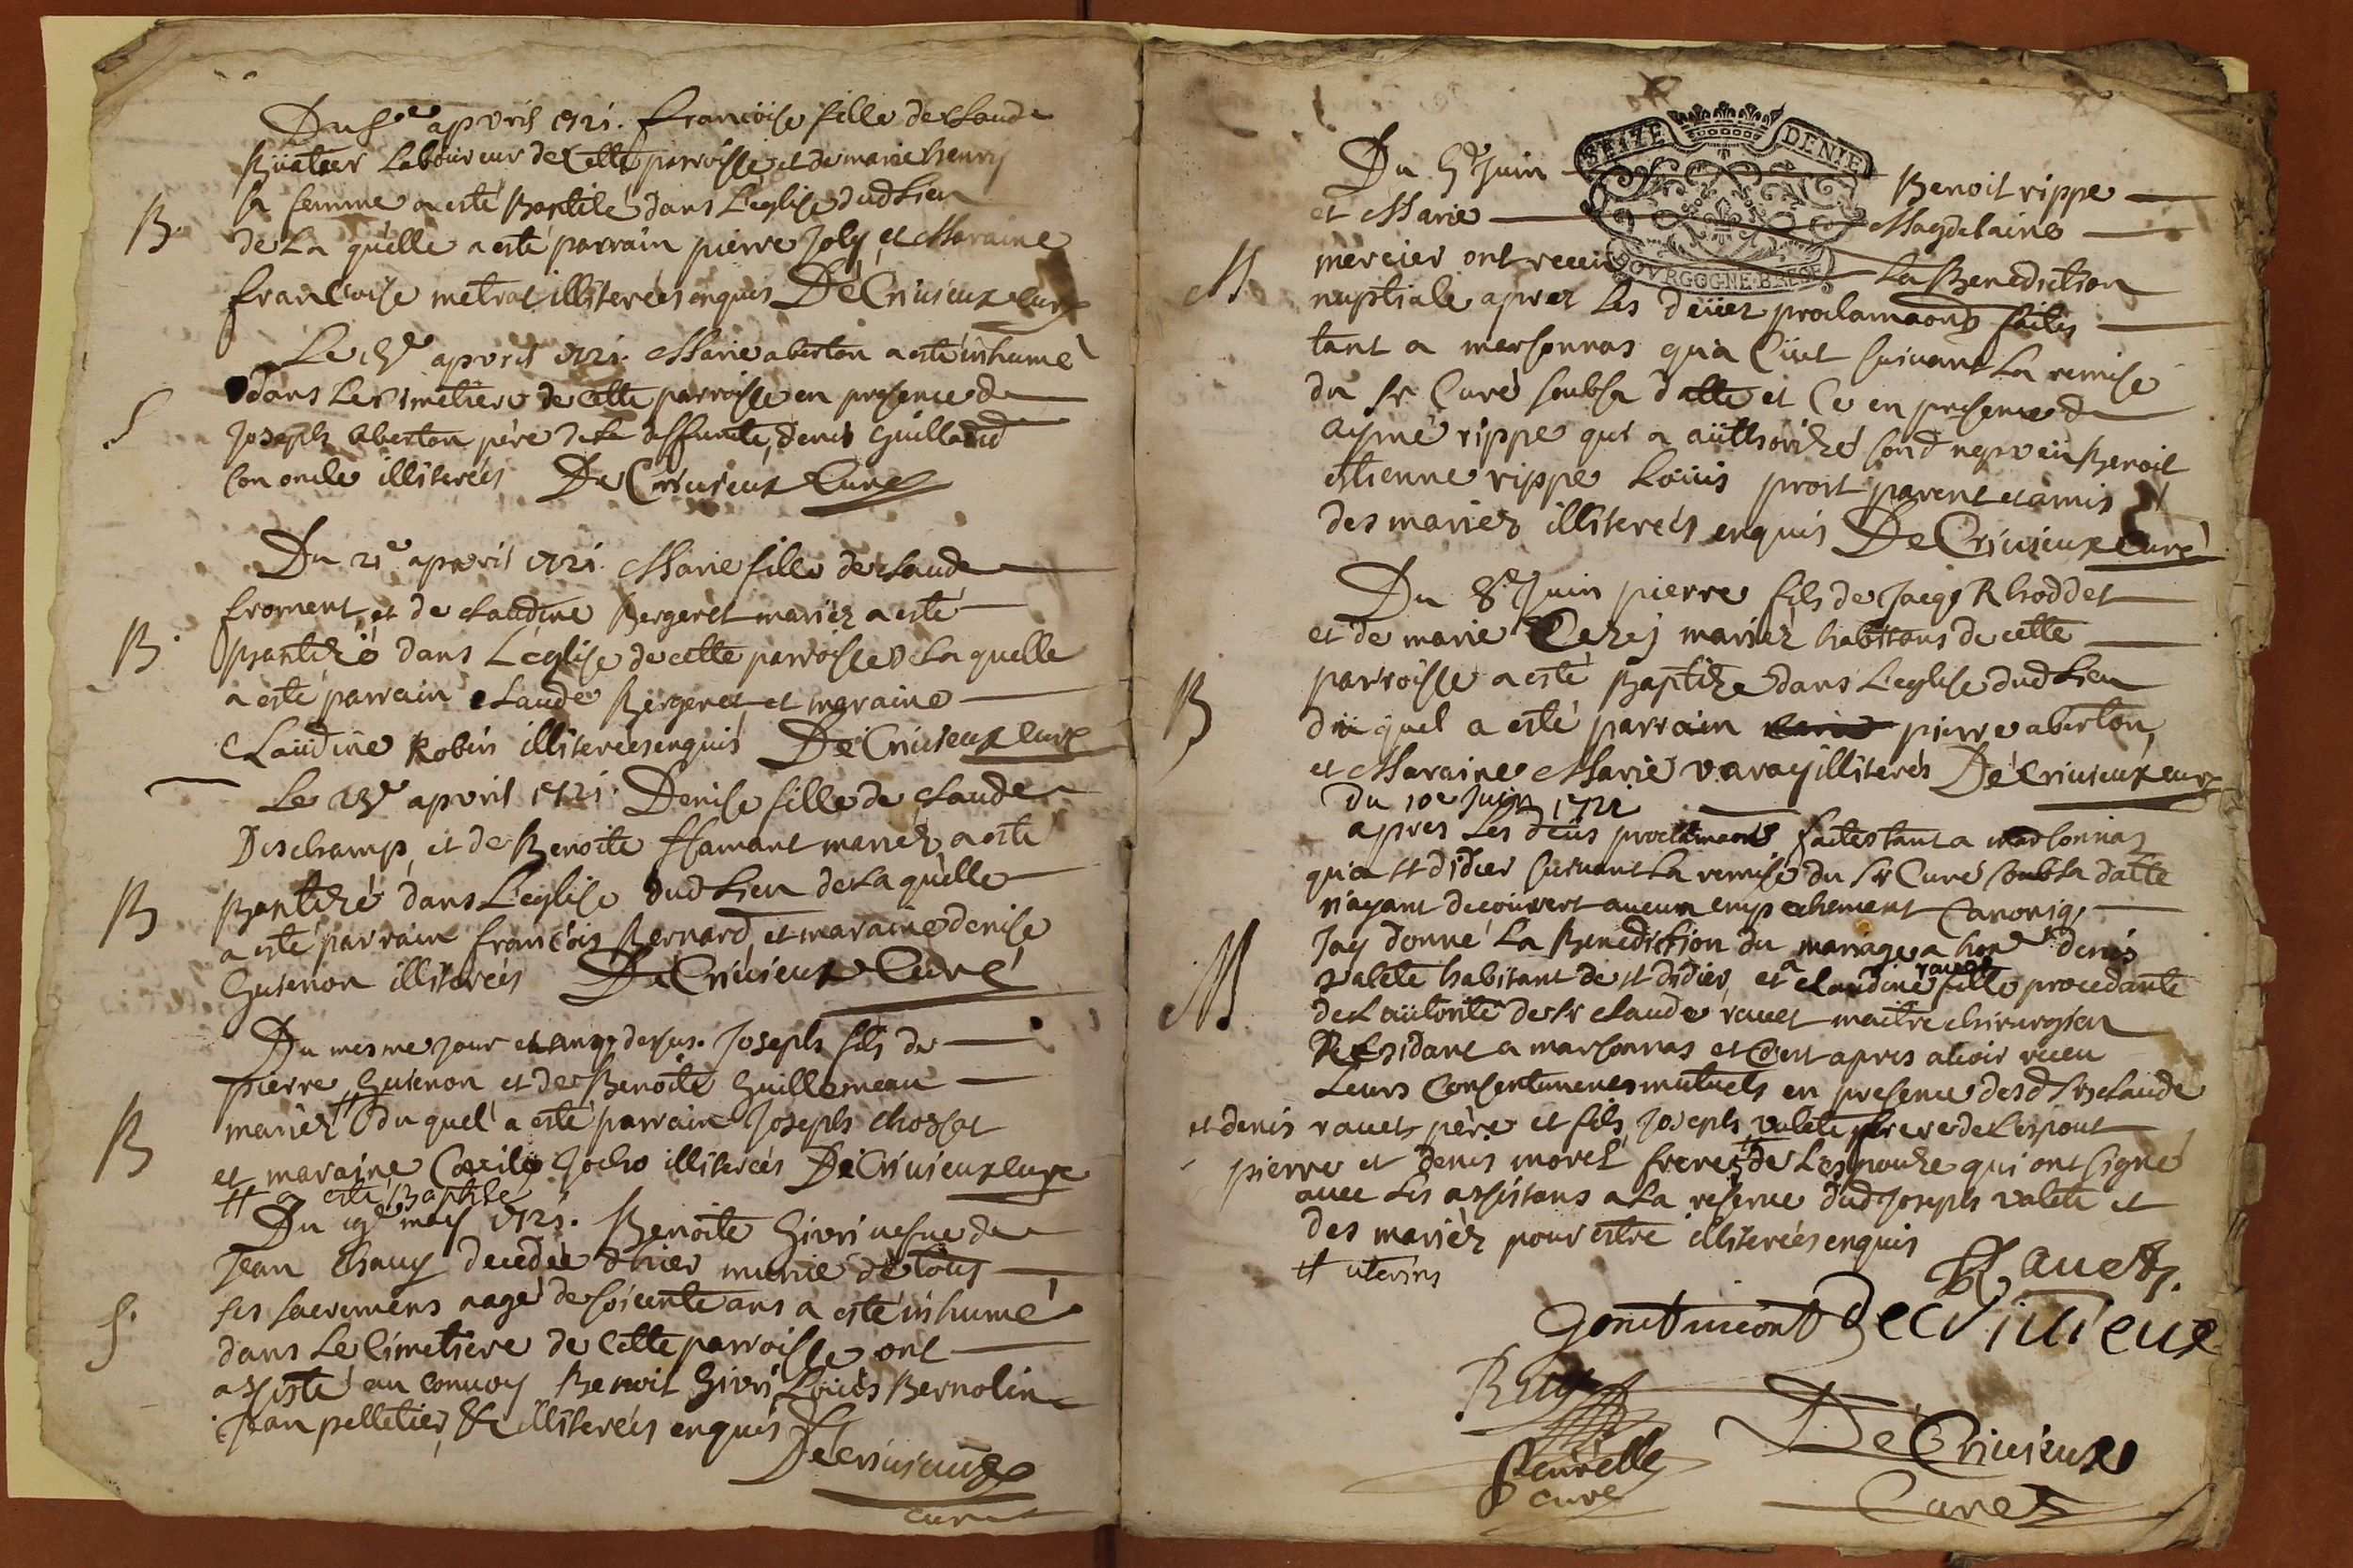 apvril 1721. francoise fille de Claude
Laboureur de Cette parroisse et de marie henry
B sa femme a esté Baptisé dans L'eglise dud Lieu
de La quelle a esté parrain pierre Joly, et Maraine
francoise metral illiterées enquis De Crivieux Curé
Le apvril 1721. Marie aberton a esté inhumé
dans Le Cimetiere de Cette parroisse en presence de
S Joseph Aberton père de La deffunte, denis Guilland
son oncle illiterées De Crivieux Curé
Du 21e apvril 1721. Marie fille de Claude
froment, et de Claudine Bergeret mariez a esté
B. dans L'eglise de cette parroisse de La quelle
a esté parrain Claude Bergeret, et maraine
Claudine Robin illiterees enquis De Crivieux Curé
Le 23e apvril 1721. Denise fille de Claude
Deschamp, et de Benoite mariez a esté
B Baptizé dans L'eglise dud Lieu de La quelle
a esté parrain francois Bernard, et maraine denise
Guienon illiterées De Crivieux Curé
Du mesme jour et an que dessus. Joseph fils de
pierre Guienon et de Benoite Guillemeau
B mariez # du quel a esté parrain Joseph Chossat
et maraine Cecile Jocho illiterées De Crivieux Curé
# a esté Baptisé
Du 19e may 1721. Benoite Givri vefve de
Jean Chavy decedée d'hier munie de tous
ses sacremens aagé de soicente ans a esté inhumé
S. dans Le Cimetiere de Cette parroisse ont
assisté au convoy Benoit Givri Loüis Bernolin
Jean pelletier, &c illiterées enquis
De Crivieux
curé
SEIZE DENIE
BOVRGOGNE·BRESSE
Du 5e Juin Benoit rippe
et Marie Magdelaine
M. mercier ont receu La Benediction
nuptiale aprez Les deüez proclamaons faites
tant a marsonnas qu'a Cüet suivant La remise
du Sr Curé soubsa datte et Ce en presence de
Aymé rippe qui a aüthorizé sond nepveü Benoit
estienne rippe Loüis prost parent et amis
des mariez illiterées enquis De Crivieux Curé
Du 8e Juin pierre fils de Jacq, Rhoddet
et de marie mariez habitans de cette
B parroisse a esté Baptizé dans L'eglise dud Lieu
du quel a esté parrain pierre aberton,
et Maraine Marie varay illiterés De Crivieux Curé
du 10e Juin 1721
apres Les deüs proclamaons faites tant a marsonnas
qu'a St didier suivant La remise du Sr Curé soubsa datte
n'ayant decouvert aucun empechement Canoniq,
M. Jay donné La Benediction du mariage a hone denis
valete habitant de St didier, et a Claudine ravet fille procedante
de L'aütorite de Sr Claude ravet maitre chirurgien
Residant a marsonnas et C'est apres avoir receu
Leurs Consentemenes mutuels en presence desd Srs Claude
et denis ravet père et fils, Joseph valete frere de L'espoux
pierre et denis morel freres # de L'espouze qui ont signé
avec Les assistans a La reserve dud Joseph valete et
des mariez pour estre illiterées enquis
# uterins
Ravet.
decrivieux
De Crivieux
curé
Curé